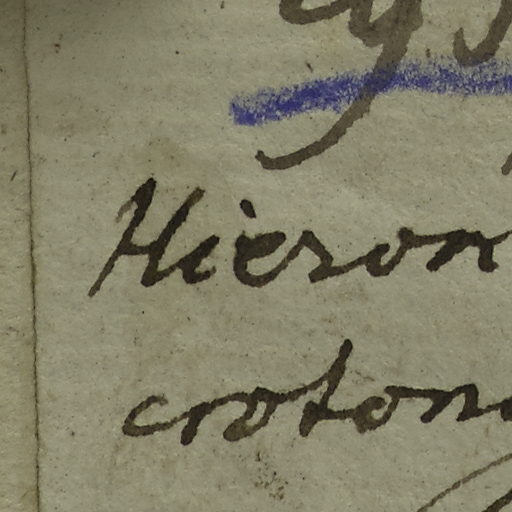 Hieron
croton